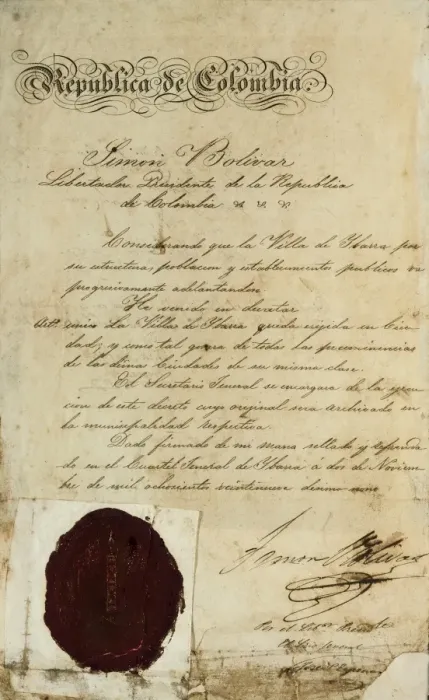 Republica de Colombia.
Simon Bolivar
Libertador Presidente de la Republica
de Colombia
Considerando que la Villa de Ibarra por
su estructura, poblacion y establecimientos publicos va
progresivamente adelantandose
He venido en decretar
Artº unico La Villa de Ibarra queda erejida en Ciu-
dad, y como tal gosara de todas las preeminencias
de las demas Ciudades de su misma clase.
El Secretario General se encargara de la ejecu-
cion de este decreto cuyo orijinal sera archivado en
la municipalidad respectiva.
Dado firmado de mi mano sellado y refrenda-
do en el Cuartel General de Ibarra a dos de Noviem-
bre de mil ochosientos veintinueve
Simon Bolivar
Por el